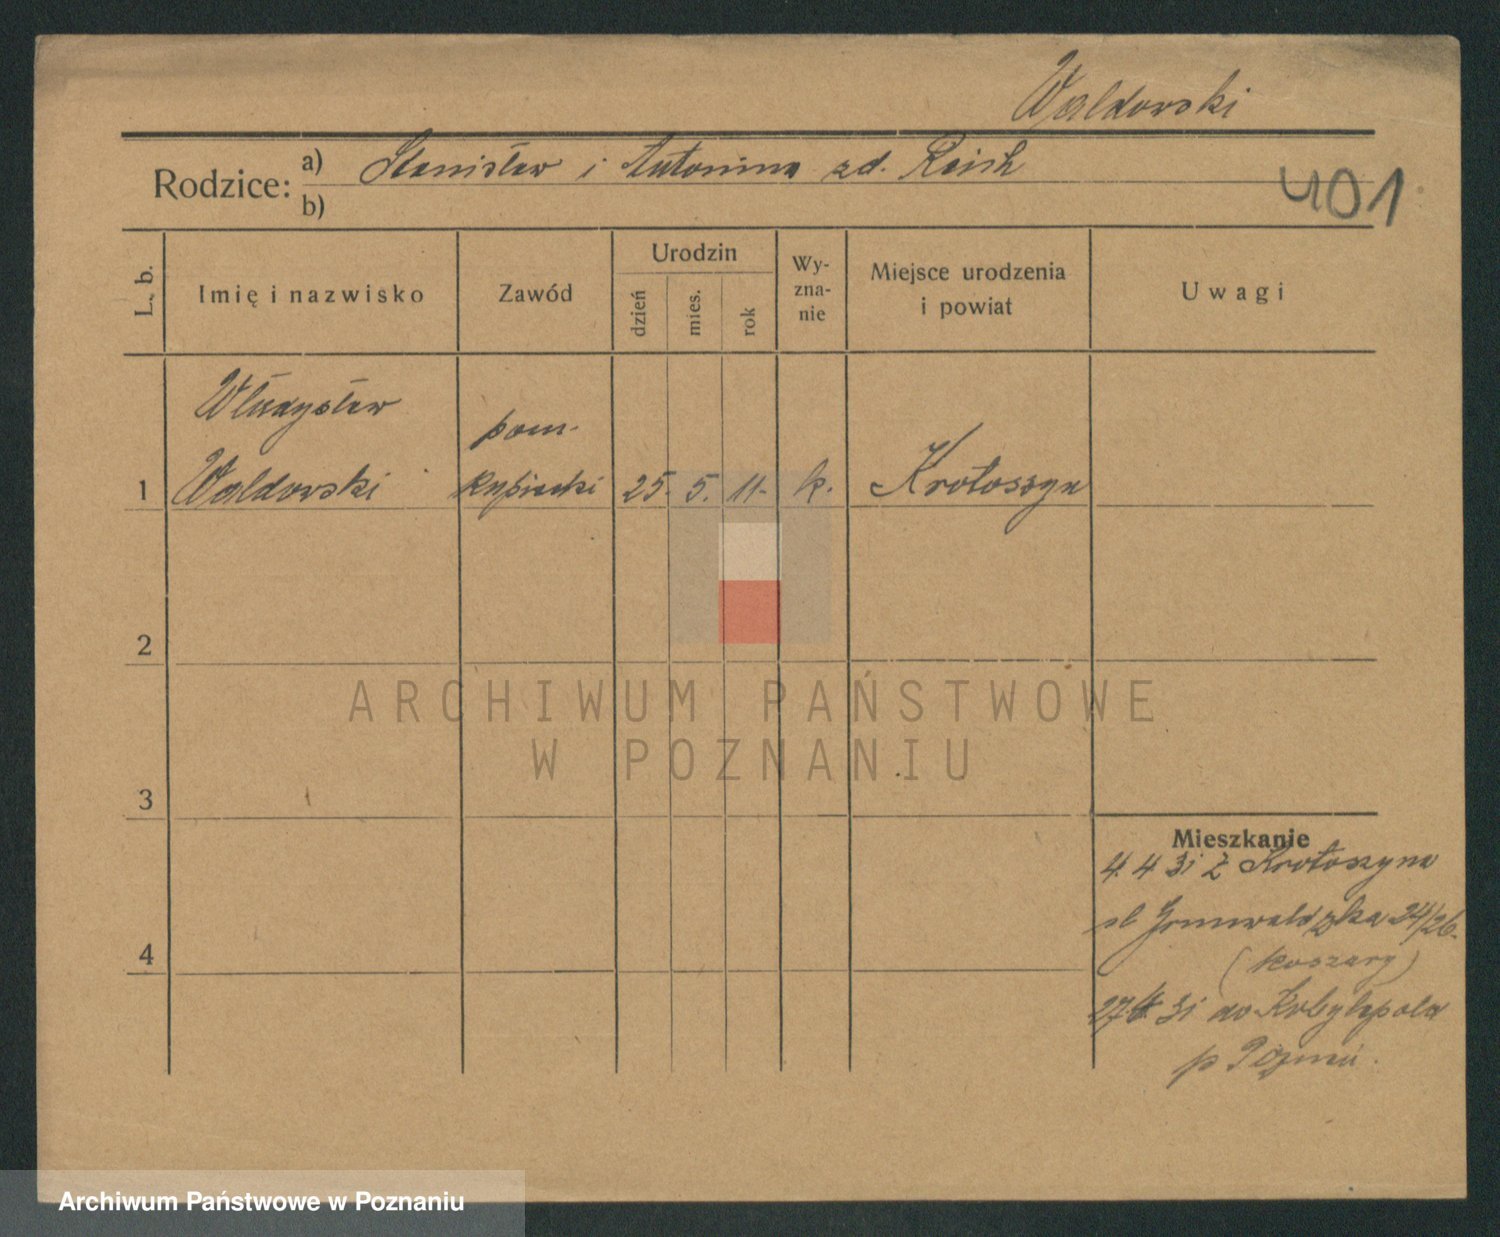 Waldowski
Rodzice: a) Stanisław i Antonina zd. Reich
b)
401
L. b. Imię i nazwisko Zawód Urodzin dzień mies. rok Wy-zna-nie Miejsce urodzenia i powiat Uwagi
Władysław pom.
1 Waldowski kupiecki 25. 5. 11. k. Krotoszyn
2
ARCHIWUM PAŃSTWOWE
W POZNANIU
3
Mieszkanie
4. 4 31 z Krotoszyna
ul Grunwaldzka 24/26.
4
(koszary)
31 do Kobylepola
p Pozna
Archiwum Państwowe w Poznaniu